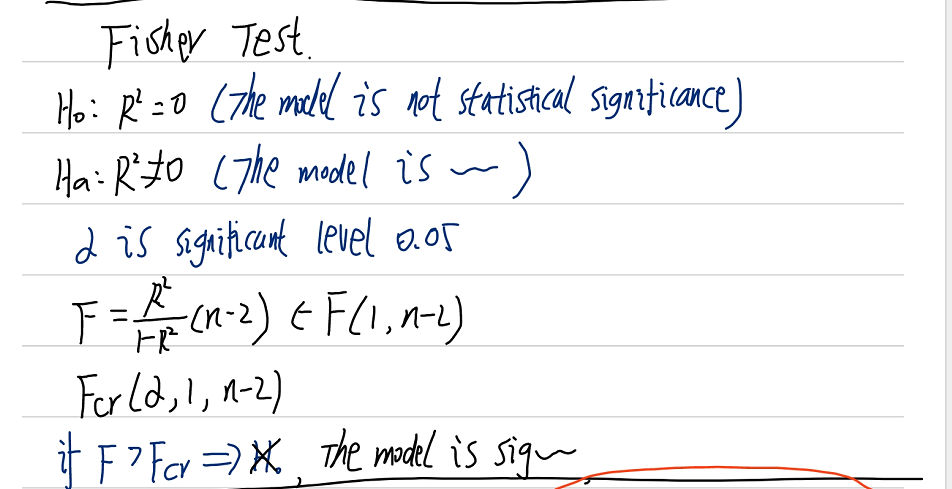 Fisher Test.
H₀: R²=0 (The model is not statistical significance)
Ha: R²≠0 (The model is ~)
α is significant level 0.05
F = R²/(1-R²) (n-2) ∈ F(1, n-2)
Fcr(α, 1, n-2)
if F > Fcr => H₀, the model is sig~